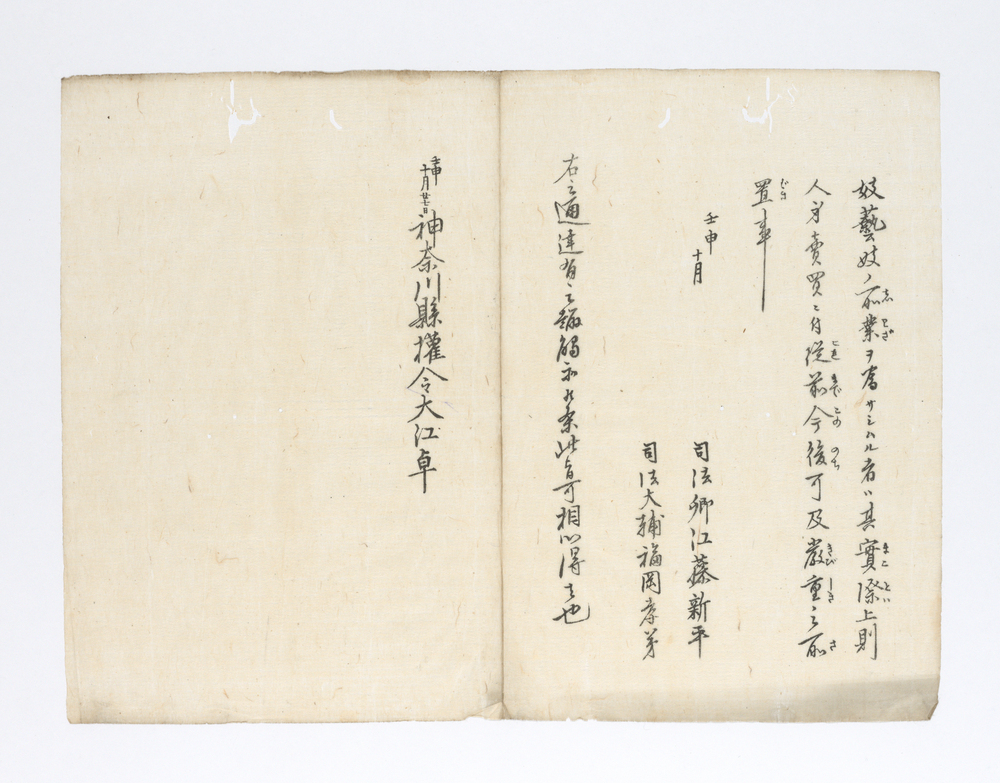 妓藝妓ノ所業ヲ為サシムル者ハ其實際上則
人身賣買ニ付從前今後可及嚴重之所
置事
壬申十月
司法卿江藤新平
司法大輔福岡孝弟
右之通達有之
相心得者也
壬申十月廿七日神奈川縣權令大江卓